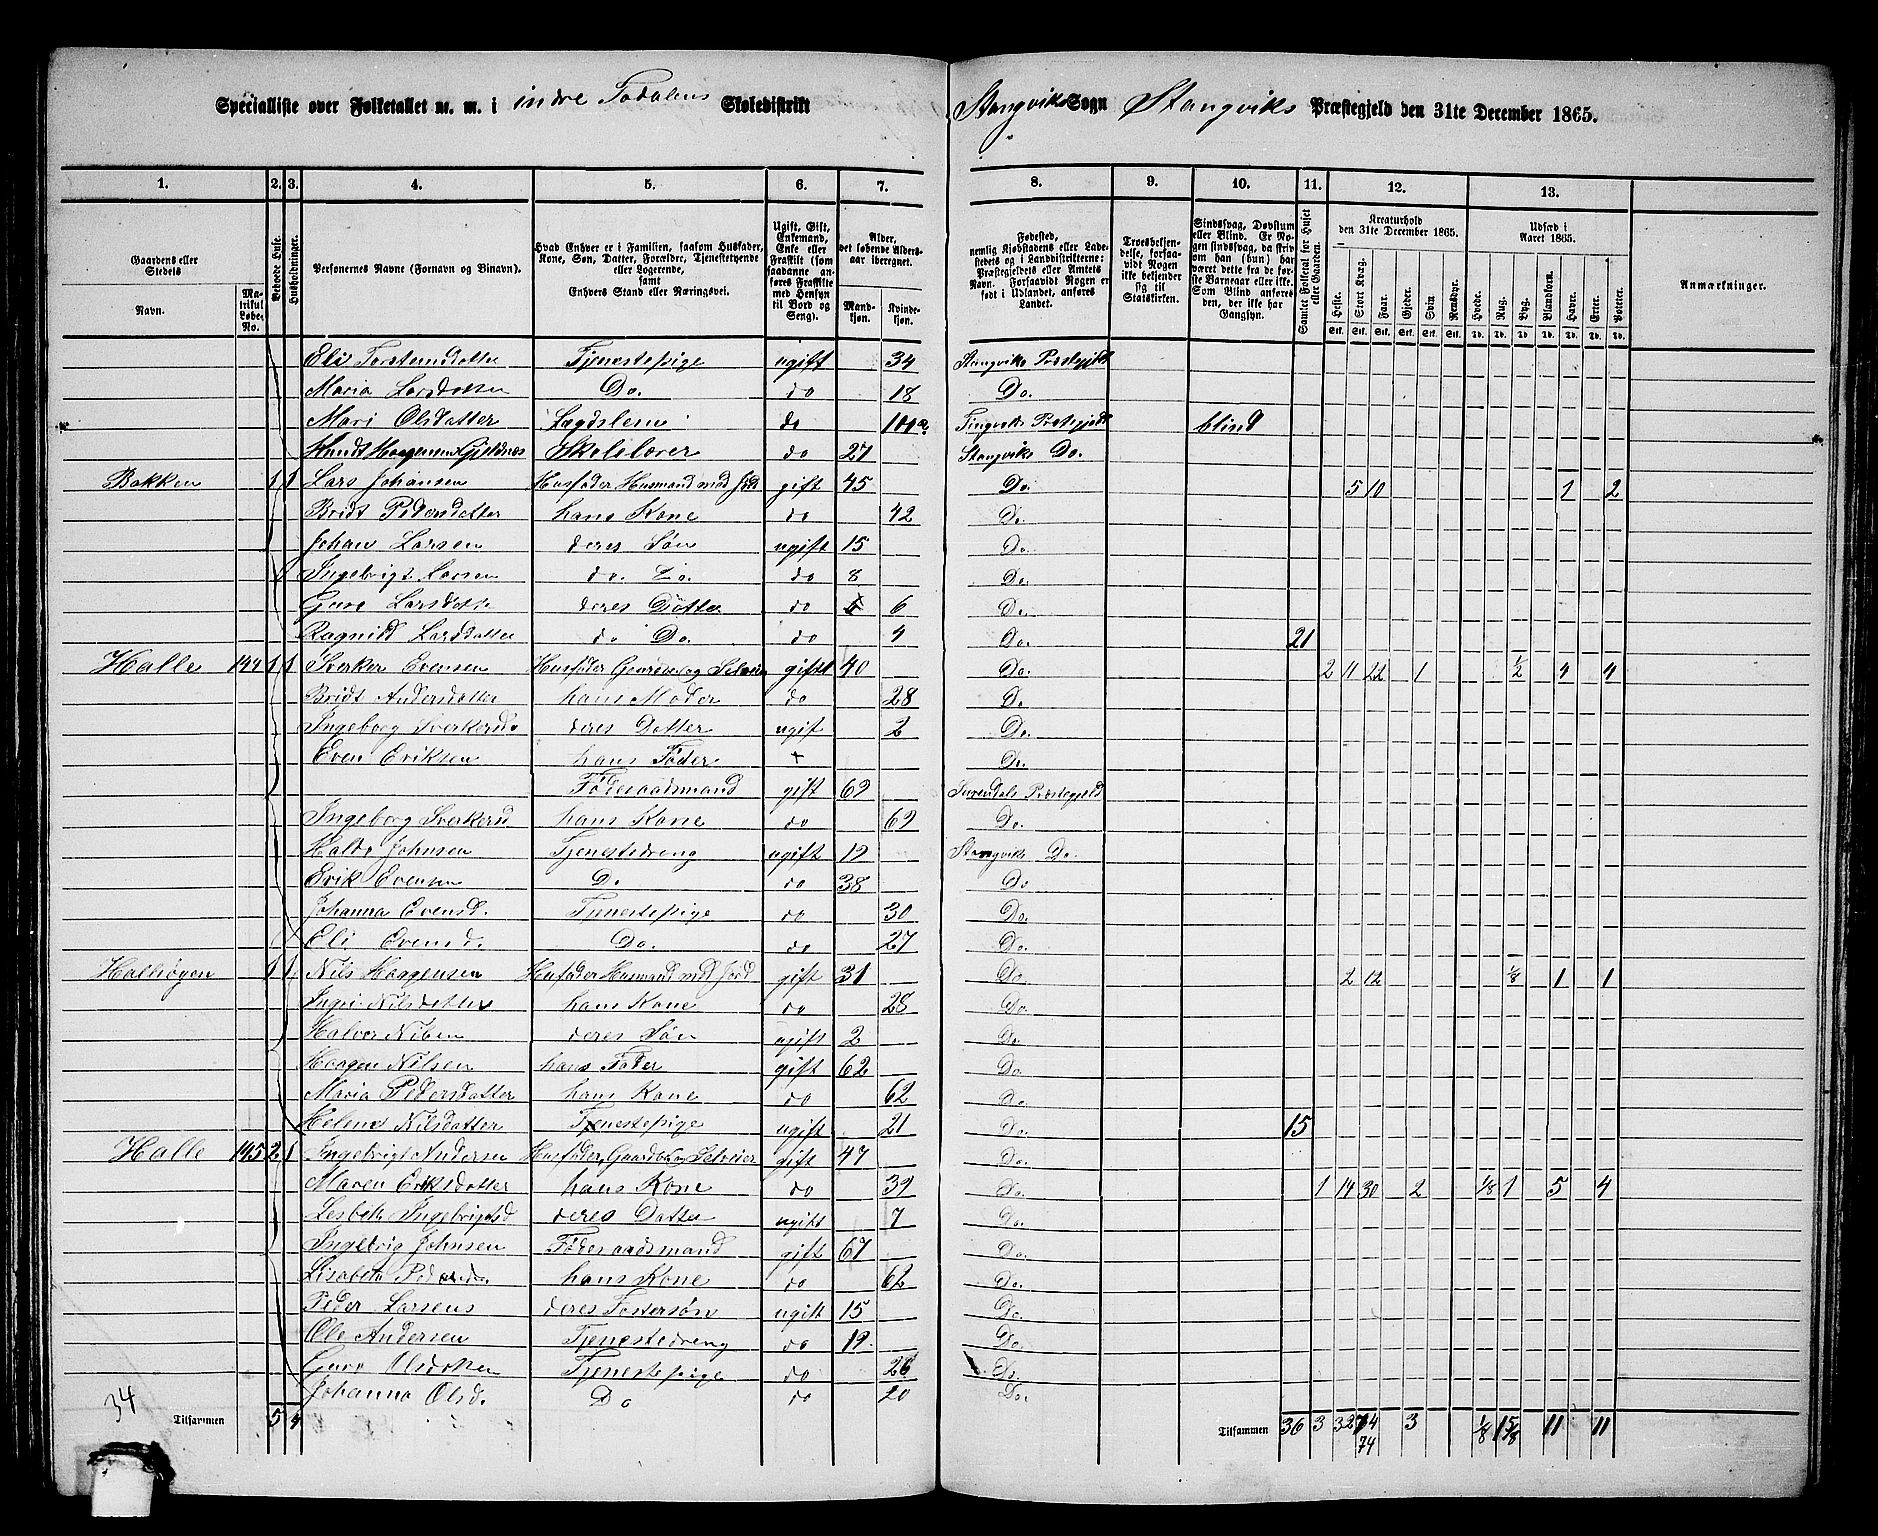 Specialliste over Folketallet m. m. i indre Todalens Skoledistrikt Stangviks Sogn Stangviks Præstegjeld den 31te December 1865.
1. 2. 3. 4. 5. 6. 7. 8. 9. 10. 11. 12. 13.
Gaardens eller Stedets
Navn.
Matrikul Løbe-No.
Beboede Huse.
Husholdninger.
Personernes Navne (Fornavn og Binavn).
Hvad Enhver er i Familien, saasom Husfader, Kone, Søn, Datter, Forældre, Tjenestetyende eller Logerende, samt Enhvers Stand eller Næringsvei.
Ugift, Gift, Enkemand, Enke eller Fraskilt (som saadanne anføres Fraskilte med Hensyn til Bord og Seng).
Alder, det løbende Alders-aar iberegnet.
Mandkjøn. Kvindekjøn.
Fødested, nemlig Kjøbstadens eller Ladestedets og i Landdistrikterne: Præstegjeldets eller Amtets Navn. Forsaavidt Nogen er født i Udlandet, anføres Landet.
Troesbekjendelse, forsaavidt Nogen ikke bekjender sig til Statskirken.
Sindssvag, Døvstum eller Blind. Er Nogen sindssvag, da skrives om han (hun) har været dette fra de første Barneaar eller ikke. Som Blind anføres den, der ikke har Gangsyn.
Samlet Folketal for Huset eller Gaarden.
Kreaturhold den 31te December 1865.
Heste. Stort Kvæg. Faar. Gjeder. Svin. Rensdyr.
Udsæd i Aaret 1865.
Hvede. Rug. Byg. Blandkorn. Havre. Erter. Poteter.
Anmærkninger.
Eli Torstensdatter Tjenestepige ugift 34 Stangviks Præstegjeld
Maria Larsdatter Do. do 18 Do.
Mari Olsdatter Lægdslem do 101 Tingvolds Præstegjeld blind
Knudt Haagensen Gjeldnes Skolelærer do 27 Stangviks Do.
Bakken 1 1 Lars Johansen Husfader Husmand med Jord gift 45 Do. 5 10 1 2
Bridt Pedersdatter hans Kone do 42 Do.
Johan Larsen deres Søn ugift 15 Do.
Ingebrigt Larsen do. Do. do 8 Do.
Guro Larsdatter deres Datter do 6 Do.
Ragnild Larsdatter do Do. do 4 Do. 21
Halle 144 1 1 Sverker Evensen Husfader Gaardbr og Selveier gift 40 Do. 2 11 22 1 1/2 4 4
Bridt Andersdatter hans Moder do 28 Do.
Ingeborg Sverkersd. deres Datter ugift 2 Do.
Even Eriksen hans Fader + Do.
Føderaadsmand gift 69 Surendals Præstegjeld
Ingeborg Sverkersd hans Kone do 69 Do.
Haldo Johnsen Tjenestedreng ugift 19 Stangviks Do.
Erik Evensen Do do 38 Do
Johanna Evensd. Tjenestepige do 30 Do.
Eli Evensd. Do. do 27 Do.
Halhøgen 1 1 Nils Haagensen Husfader Husmand med Jord gift 31 Do. 2 12 1/8 1 1
Ingri Nilsdatter hans Kone do 28 Do.
Halvor Nilsen deres Søn ugift 2 Do.
Haagen Nilsen hans Fader gift 62 Do.
Maria Pedersdatter hans Kone do 62 Do.
Helena Nilsdatter Tjenestepige ugift 21 Do. 15
Halle 145 2 1 Ingebrigt Andersen Husfader, Gaardbr og Selveier gift 47 Do.
Maren Eriksdatter hans Kone do 39 Do. 1 14 30 2 1/8 1 5 4
Lesbet Ingebrigtsd deres Datter ugift 7 Do.
Ingebrig Johnsen Føderaadsmand gift 67 Do.
Lisabeta Pedersd. hans Kone do 62 Do.
Peder Larsens deres Fostersøn ugift 15 Do.
Ole Andersen Tjenestedreng do 19. Do.
Guro Olsdatter Tjenestepige do 26 Do.
Johanna Olsd. Do do 20 Do.
34
Tilsammen 5 4 Tilsammen 36 3 32 74 3 1/8 1 5/8 11 11
74